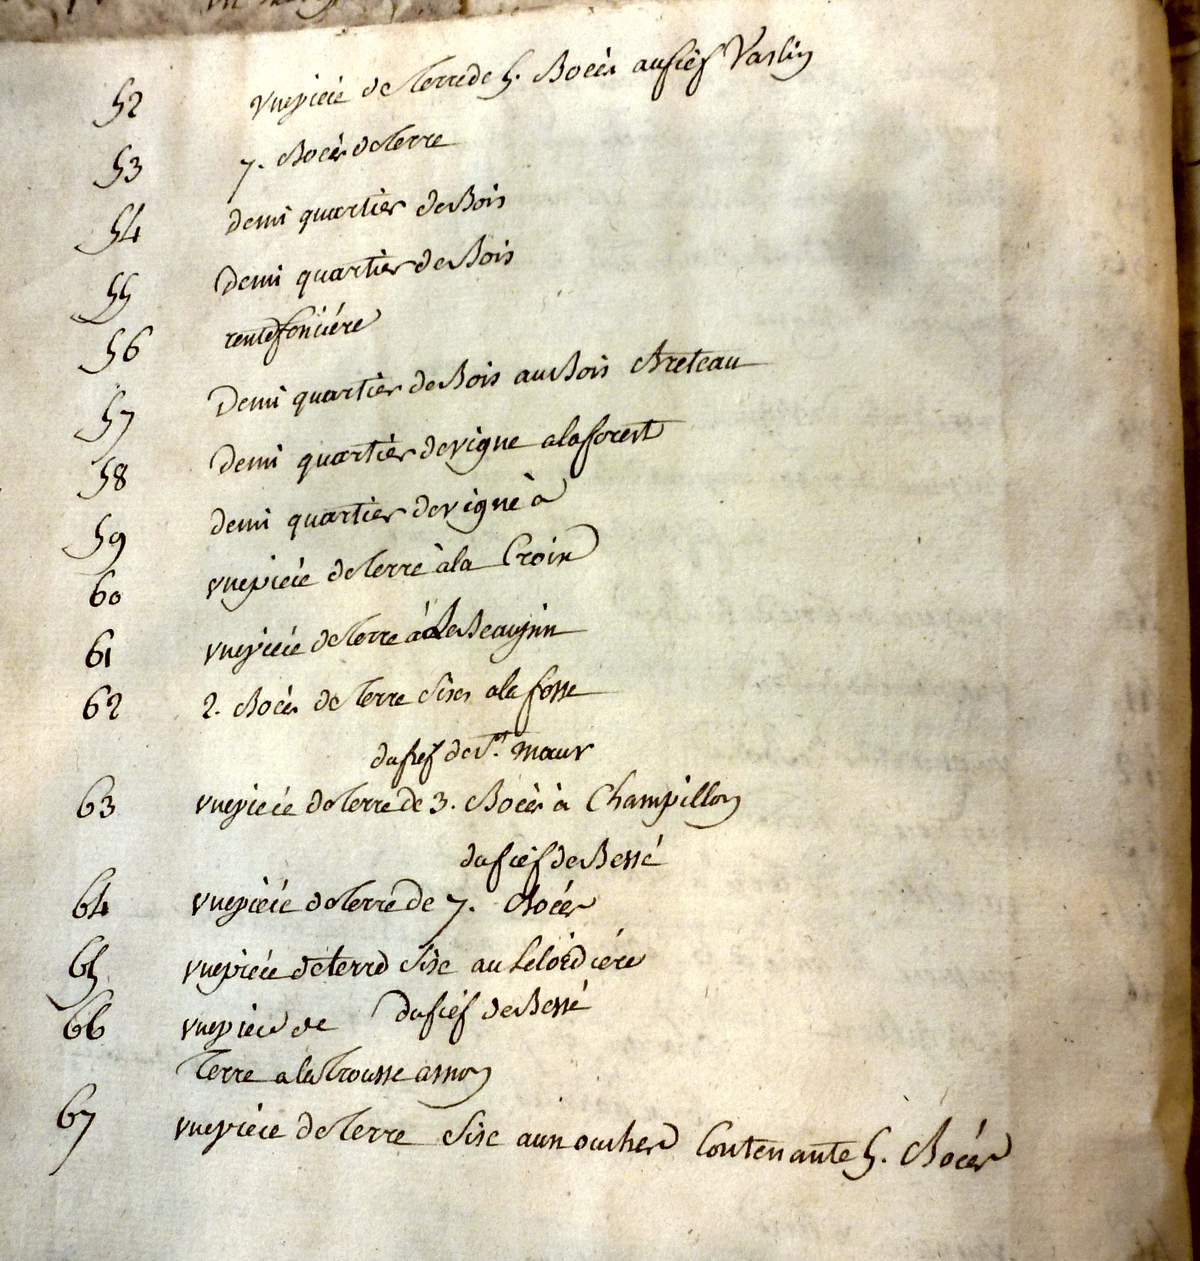 52 vne pieié de Terre de 5. Boeés au fief Vaslin
53 7. Boeés de Terre
54 demi quartier de Bois
55 Demi quartier de Bois
56 rente fonciére
57 Demi quartier de Bois au Bois Areteau
58 demi quartier de vigne a la forest
59 demi quartier de vigne à
60 vne pieié de Terre à la Croix
61 vne pieié de Terre à Beaupin
62 2. Boeés de Terre Sises a la fosse
du fief de St. maur
63 vne pieié de Terre de 3. Boeés à Champillon
du fief de Bessé
64 vne pieié de Terre de 7. Boeés
65 vne pieié de terre Sise au
66 vne pieié de du fief de Bessé
Terre a la Trousse asnon
67 vne pieié de Terre Sise aux ouches Contenante 5. Boeés